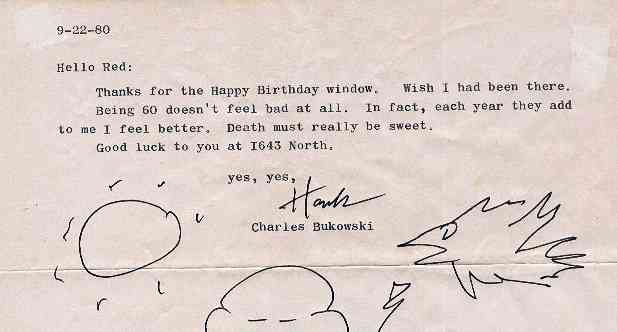 9-22-80
Hello Red:
Thanks for the Happy Birthday window. Wish I had been there.
Being 60 doesn't feel bad at all. In fact, each year they add
to me I feel better. Death must really be sweet.
Good luck to you at I643 North.
yes, yes,
Hank
Charles Bukowski